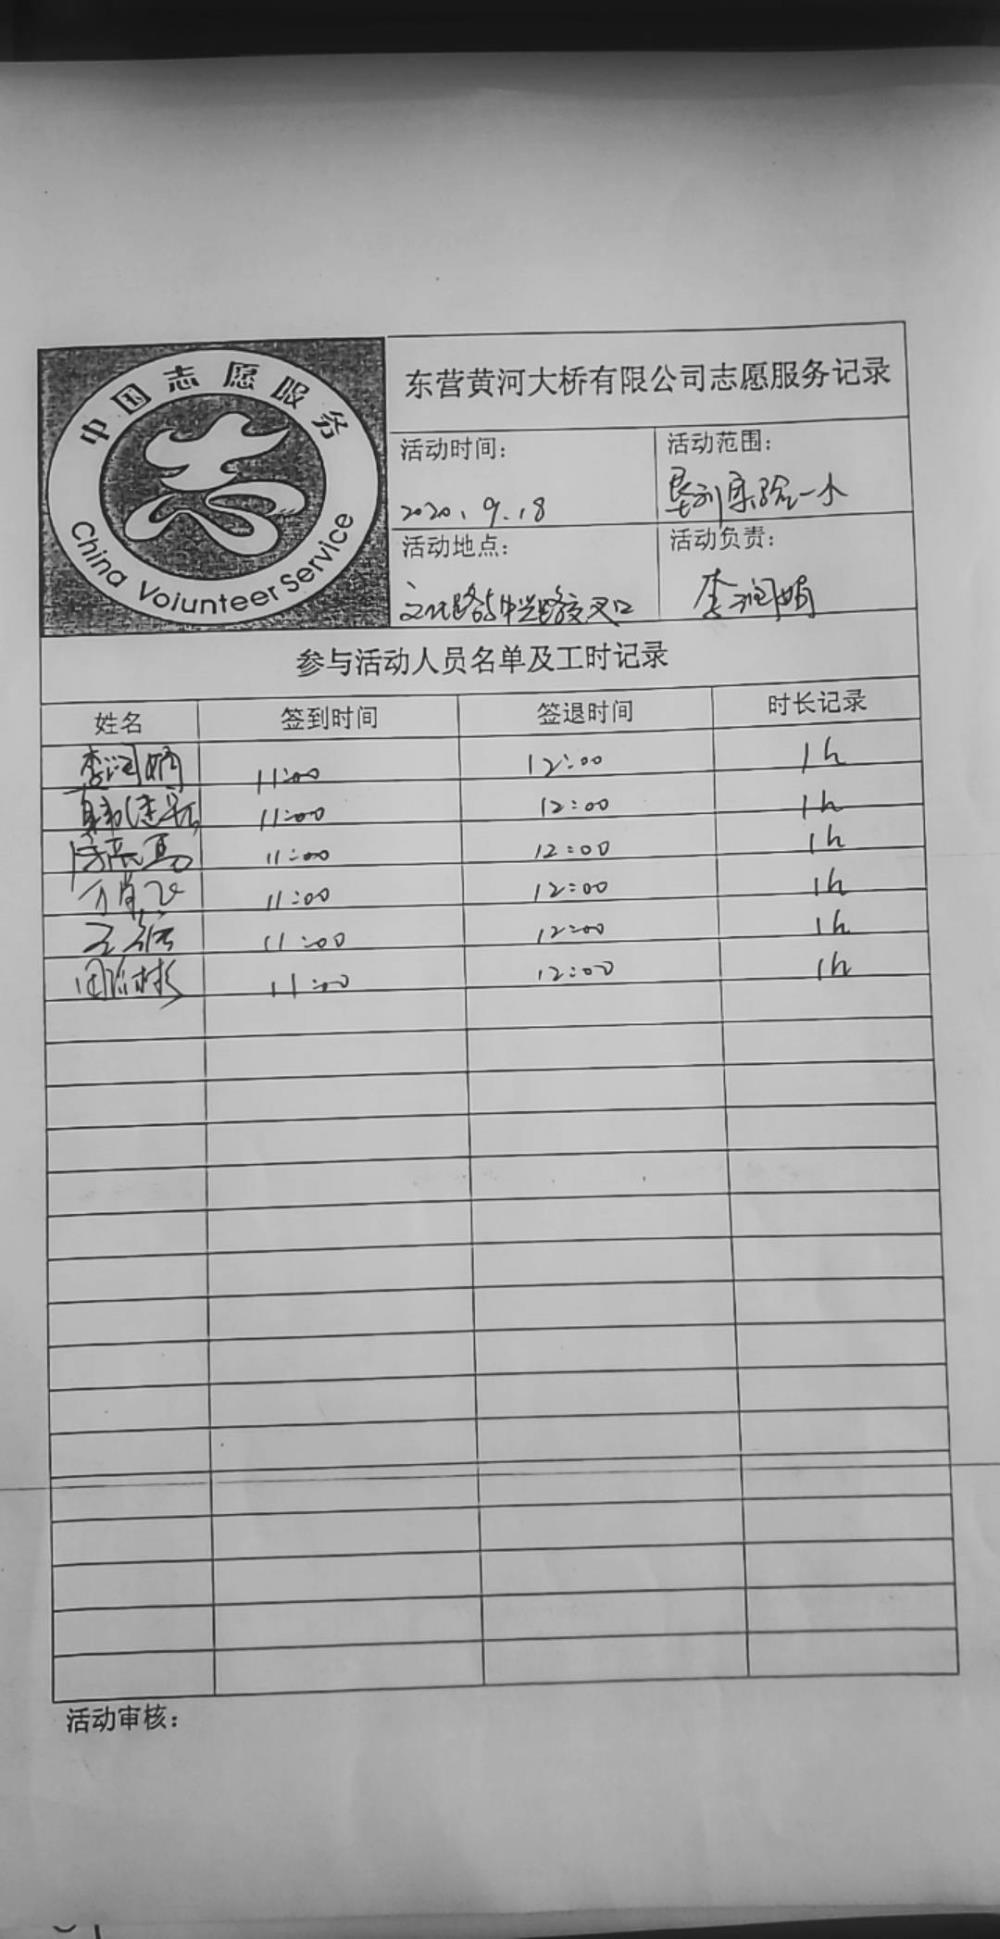 中国志愿服务
China Voiunteer Service
东营黄河大桥有限公司志愿服务记录
活动时间：
2020.9.18
活动范围：
垦利实验一小
活动地点：
文化路与中兴路交叉口
活动负责：
李润娟
参与活动人员名单及工时记录
姓名 签到时间 签退时间 时长记录
李润娟 11:00 12:00 1h
11:00 12:00 1h
11:00 12:00 1h
11:00 12:00 1h
11:00 12:00 1h
11:00 12:00 1h
活动审核：